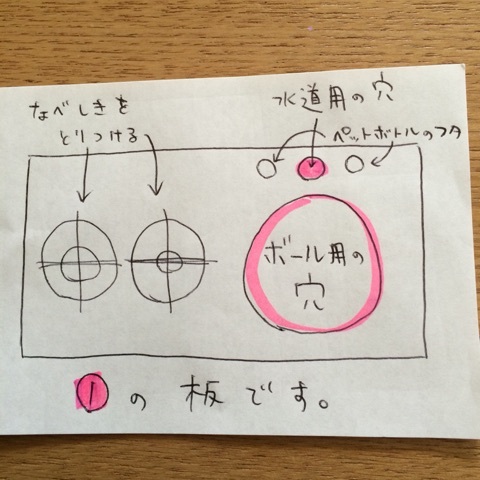 なべしきを
とりつける
水道用の穴
ペットボトルのフタ
ボール用の
穴
①の板です。